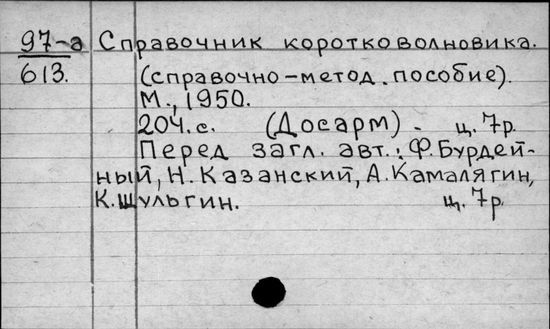 97-а Справочник коротковолновика.
613. (справочно-метод. пособие).
М., 1950.
204.с. (Досарм) - ц. 7р.
Перед загл. авт.: Ф.Бурдей-
ный, Н.Казанский, А.Камалягин,
К.Шульгин. ц. 7р.